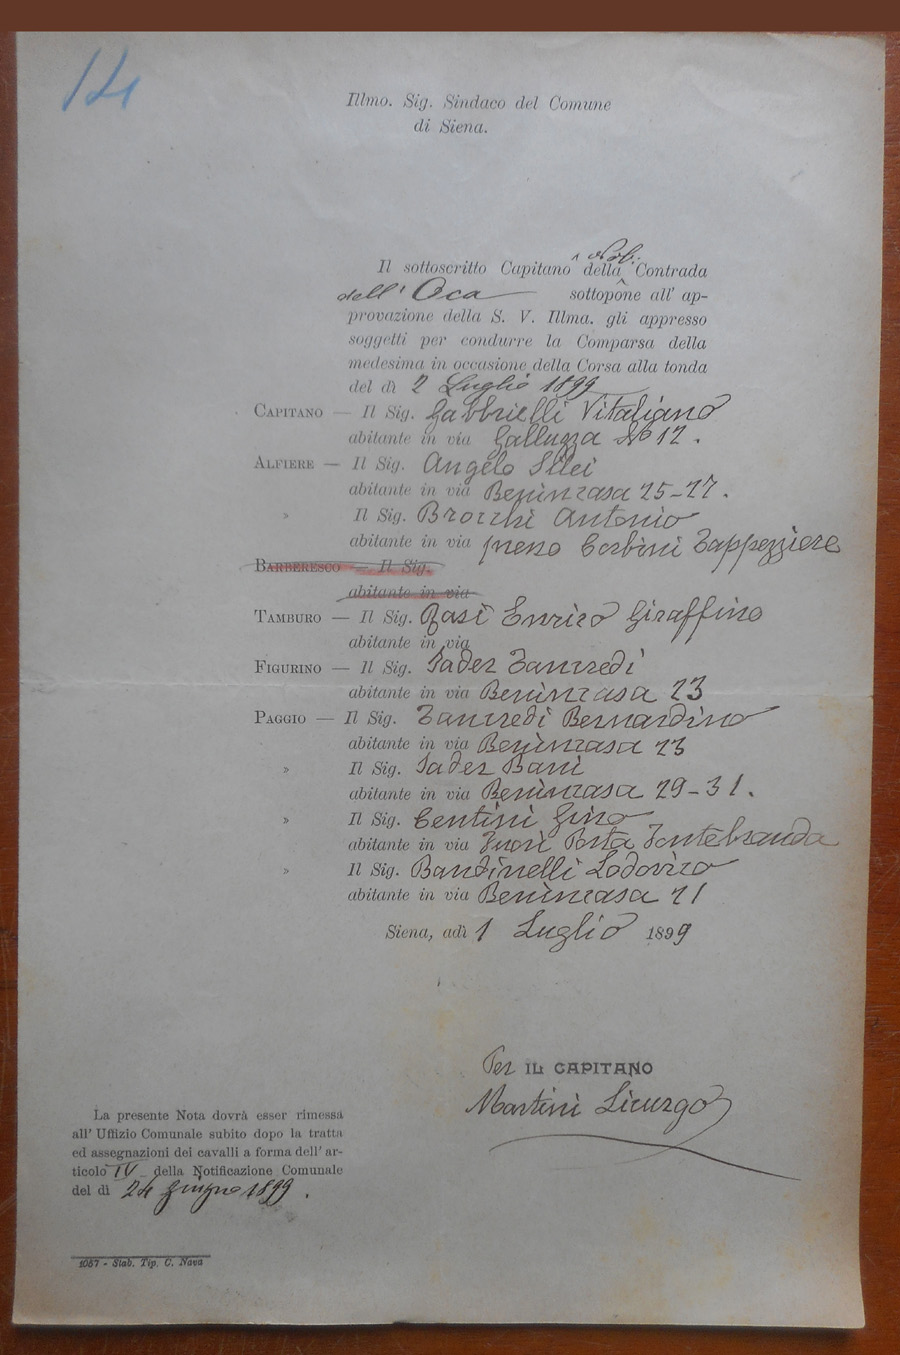 14
Illmo. Sig. Sindaco del Comune
di Siena.
Nob.
Il sottoscritto Capitano della Contrada
dell' Oca sottopone all' ap-
provazione della S. V. Illma. gli appresso
soggetti per condurre la Comparsa della
medesima in occasione della Corsa alla tonda
del dì 2 Luglio 1899
CAPITANO — Il Sig. Gabbrielli Vitaliano
abitante in via Galluzza No 12.
ALFIERE — Il Sig. Angelo Silei
abitante in via Benincasa 25-27.
» Il Sig. Brocchi Antonio
abitante in via presso Corbini Tappezziere
BARBERESCO — Il Sig.
abitante in via
TAMBURO — Il Sig. Enrico Giraffino
abitante in via
FIGURINO — Il Sig. Sader Tancredi
abitante in via Benincasa 23
PAGGIO — Il Sig. Tancredi Bernardino
abitante in via Benincasa 23
» Il Sig. Sader Bani
abitante in via Benincasa 29-31.
» Il Sig. Centini Gino
abitante in via Fuori Porta Fontebranda
» Il Sig. Bandinelli Lodovico
abitante in via Benincasa 21
Siena, adì 1 Luglio 1899
Per IL CAPITANO
Martini Licurgo
La presente Nota dovrà esser rimessa
all' Uffizio Comunale subito dopo la tratta
ed assegnazioni dei cavalli a forma dell' ar-
ticolo IV della Notificazione Comunale
del dì 24 giugno 1899.
1087 - Stab. Tip. C. Nava